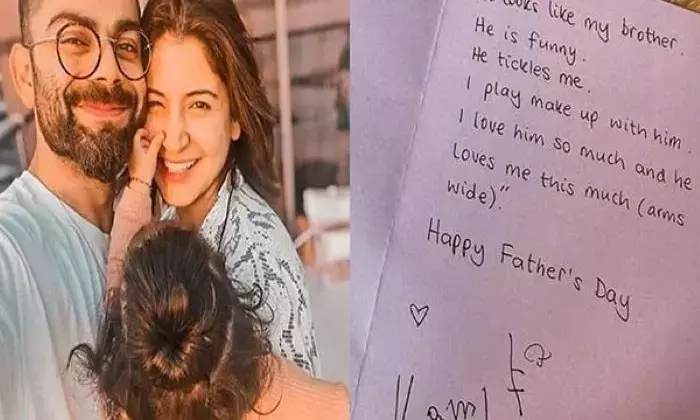 looks like my brother.
He is funny.
He tickles me.
I play make up with him.
I love him so much and he
loves me this much (arms
wide)."
Happy Father's Day